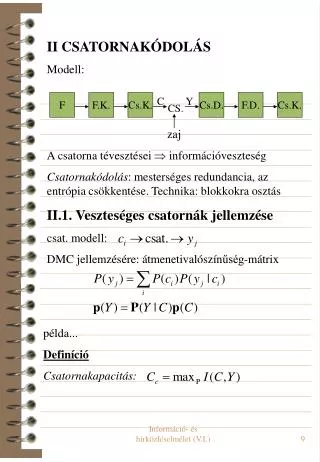 II CSATORNAKÓDOLÁS
Modell:
F F.K. Cs.K. C CS. Y Cs.D. F.D. Cs.K.
zaj
A csatorna tévesztései ⇒ információveszteség
Csatornakódolás: mesterséges redundancia, az
entrópia csökkentése. Technika: blokkokra osztás
II.1. Veszteséges csatornák jellemzése
csat. modell: c_i → csat. → y_j
DMC jellemzésére: átmenetivalószínűség-mátrix
P(y_j) = ∑_i P(c_i)P(y_j | c_i)
p(Y) = P(Y | C)p(C)
példa...
Definíció
Csatornakapacitás: C_c = max_P I(C,Y)
Információ- és
hírközléselmélet (V.I.)
9